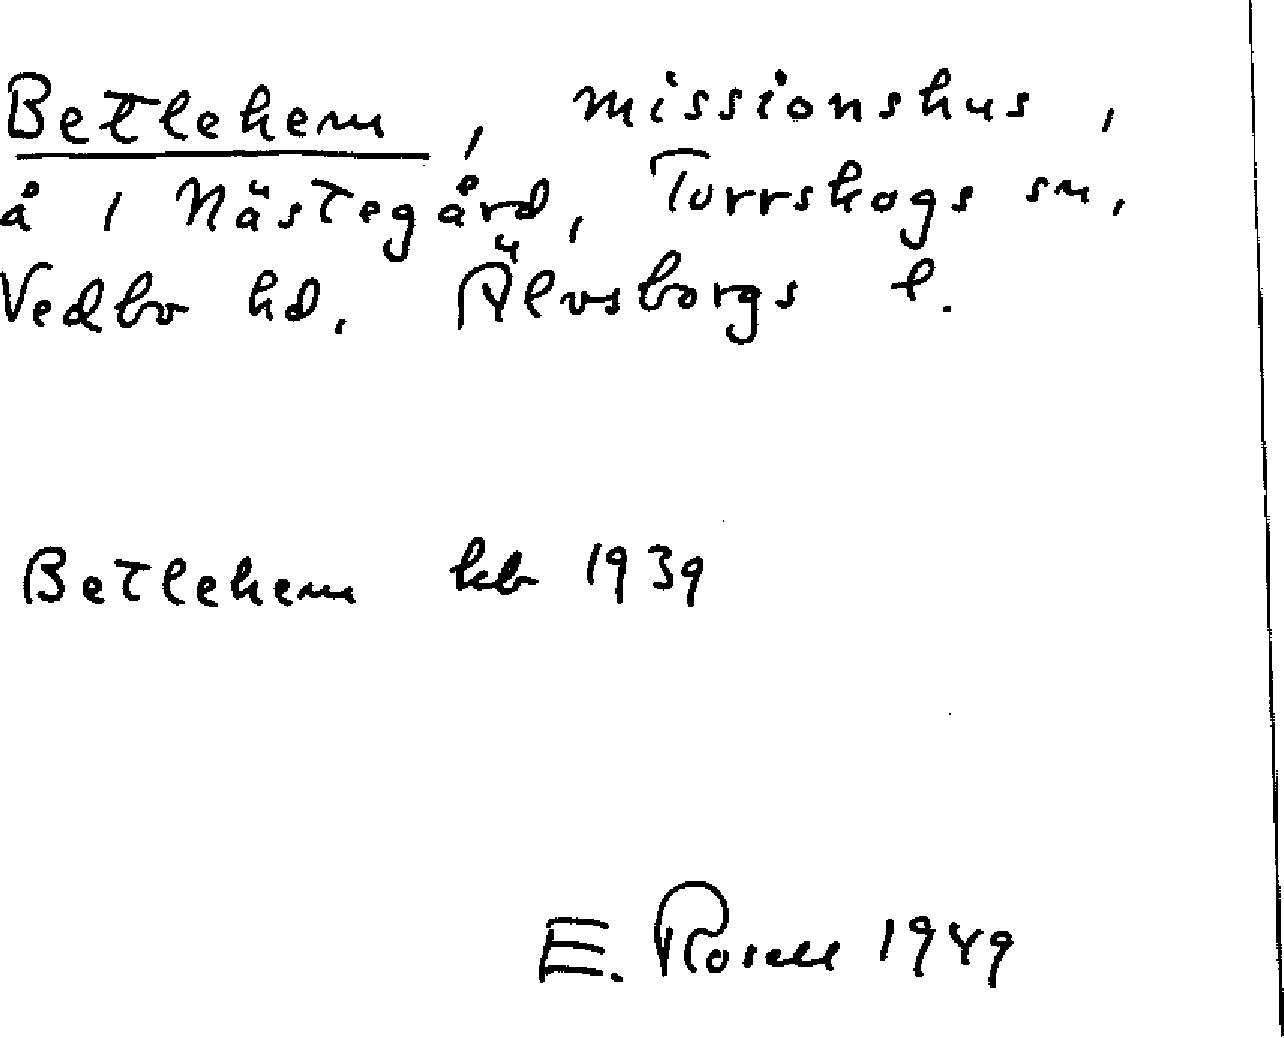 Betlehem, missionshus,
å 1 Nästegård, Torrskogs sn,
Vedbo hd, Älvsborgs l.
Betlehem kb 1939
E. Rosell 1949